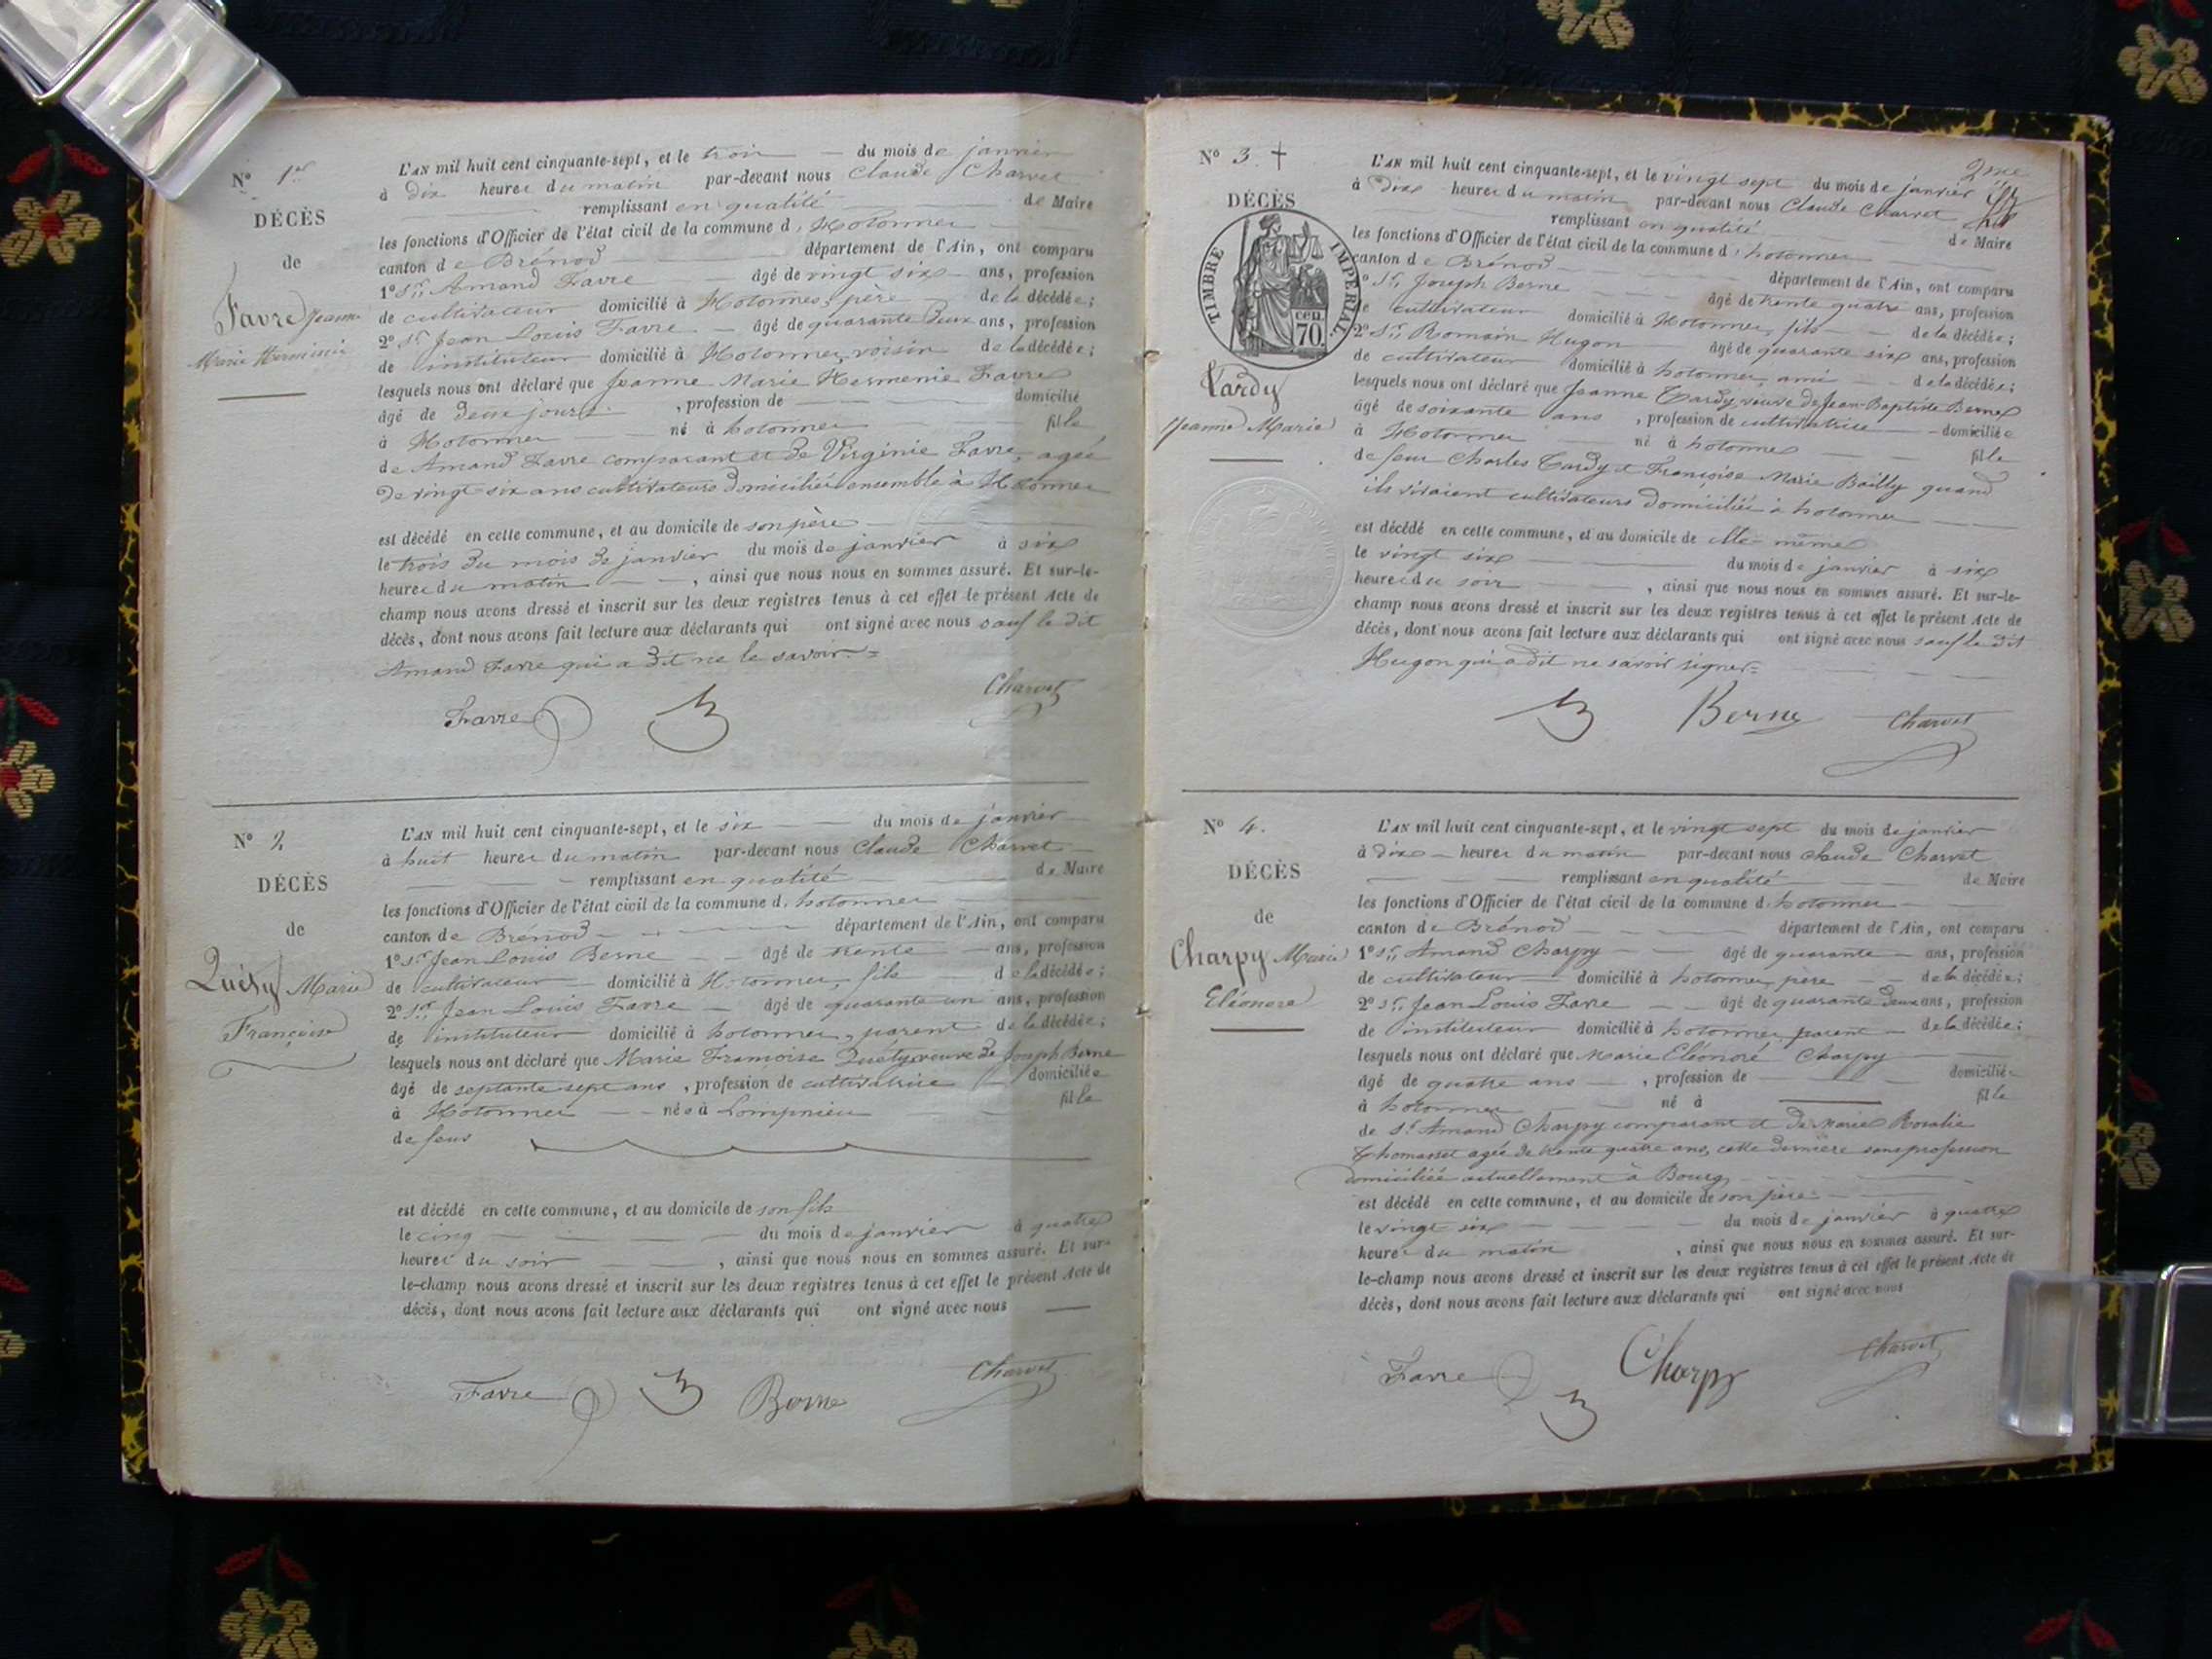 N° 1er
DÉCÈS
de
Favre Jeanne
Marie Herminie
L'AN mil huit cent cinquante-sept, et le trois du mois de janvier
à dix heures du matin par-devant nous Claude Charvet
remplissant en qualité de Maire
les fonctions d'Officier de l'état civil de la commune d' Hotonnes
canton de Brénod département de l'Ain, ont comparu
1° Sr. Amand Favre âgé de vingt six ans, profession
de cultivateur domicilié à Hotonnes, père de la décédée;
2° Sr. Jean Louis Favre âgé de quarante deux ans, profession
de instituteur domicilié à Hotonnes, voisin de la décédée;
lesquels nous ont déclaré que Jeanne Marie Hermenie Favre
âgé de deux jours, profession de domicilié
à Hotonnes né à hotonnes fille
de Amand Favre comparant et de Virginie Favre, agée
de vingt six ans cultivateurs domiciliés ensemble à Hotonnes
est décédé en cette commune, et au domicile de son père
le trois du mois de janvier du mois de janvier à six
heures du matin, ainsi que nous nous en sommes assuré. Et sur-le-
champ nous avons dressé et inscrit sur les deux registres tenus à cet effet le présent Acte de
décès, dont nous avons fait lecture aux déclarants qui ont signé avec nous sauf le dit
Amand Favre qui a dit ne le savoir.
Favre Charvet
N° 2
DÉCÈS
de
Quéty Marie
Françoise
L'AN mil huit cent cinquante-sept, et le six du mois de janvier
à huit heures du matin par-devant nous Claude Charvet
remplissant en qualité de Maire
les fonctions d'Officier de l'état civil de la commune d' hotonnes
canton de Brénod département de l'Ain, ont comparu
1° Sr. Jean Louis Berne âgé de trente ans, profession
de cultivateur domicilié à Hotonnes, fils de la décédée;
2° Sr. Jean Louis Favre âgé de quarante un ans, profession
de instituteur domicilié à hotonnes, parent de la décédée;
lesquels nous ont déclaré que Marie Françoise Quéty veuve de Joseph Berne
âgé de septante sept ans, profession de cultivatrice domiciliée
à Hotonnes née à Lompnieu fille
de feus
est décédé en cette commune, et au domicile de son fils
le cinq du mois de janvier à quatre
heures du soir, ainsi que nous nous en sommes assuré. Et sur-
le-champ nous avons dressé et inscrit sur les deux registres tenus à cet effet le présent Acte de
décès, dont nous avons fait lecture aux déclarants qui ont signé avec nous
Favre Berne Charvet
2me
N° 3. †
DÉCÈS
TIMBRE IMPERIAL
cen.
70.
Tardy
Jeanne Marie
L'AN mil huit cent cinquante-sept, et le vingt sept du mois de janvier
à dix heures du matin par-devant nous Claude Charvet
remplissant en qualité de Maire
les fonctions d'Officier de l'état civil de la commune d' hotonnes
canton de Brénod département de l'Ain, ont comparu
1° Sr. Joseph Berne âgé de trente quatre ans, profession
de cultivateur domicilié à Hotonnes, fils de la décédée;
2° Sr. Romain Hugon âgé de quarante six ans, profession
de cultivateur domicilié à hotonnes, ami de la décédée;
lesquels nous ont déclaré que Jeanne Tardy, veuve de Jean-Baptiste Berne
âgé de soixante ans, profession de cultivatrice domiciliée
à Hotonnes né à hotonnes fille
de feus Charles Tardy et Françoise Marie Bailly quand
ils vivaient cultivateurs domiciliés à hotonnes
est décédé en cette commune, et au domicile de elle-même
le vingt six du mois de janvier à six
heures du soir, ainsi que nous nous en sommes assuré. Et sur-le-
champ nous avons dressé et inscrit sur les deux registres tenus à cet effet le présent Acte de
décès, dont nous avons fait lecture aux déclarants qui ont signé avec nous sauf le dit
Hugon qui a dit ne savoir signer
Berne Charvet
N° 4.
DÉCÈS
de
Charpy Marie
Eléonore
L'AN mil huit cent cinquante-sept, et le vingt sept du mois de janvier
à dix heures du matin par-devant nous Claude Charvet
remplissant en qualité de Maire
les fonctions d'Officier de l'état civil de la commune d' hotonnes
canton de Brénod département de l'Ain, ont comparu
1° Sr. Amand Charpy âgé de quarante ans, profession
de cultivateur domicilié à hotonnes, père de la décédée;
2° Sr. Jean Louis Favre âgé de quarante deux ans, profession
de instituteur domicilié à hotonnes, parent de la décédée;
lesquels nous ont déclaré que Marie Eléonore Charpy
âgé de quatre ans, profession de domiciliée
à hotonnes né à fille
de Sr. Amand Charpy comparant et de Marie Rosalie
Thomasset agée de trente quatre ans, cette dernière sans profession
domiciliée actuellement à Bourg
est décédé en cette commune, et au domicile de son père
le vingt six du mois de janvier à quatre
heures du matin, ainsi que nous nous en sommes assuré. Et sur-
le-champ nous avons dressé et inscrit sur les deux registres tenus à cet effet le présent Acte de
décès, dont nous avons fait lecture aux déclarants qui ont signé avec nous
Favre Charpy Charvet